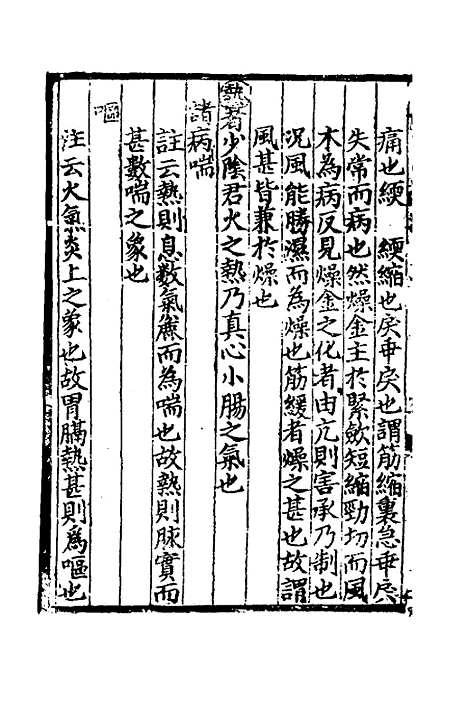 痛也緛　緛縮也戾乖戾也謂筋縮裏急乖戾
失常而病也然燥金主於緊斂短縮勁切而風
木為病反見燥金之化者由亢則害承乃制也
況風能勝濕而為燥也筋緩者燥之甚也故謂
風甚皆兼於燥也
熱者少陰君火之熱乃真心小腸之氣也
諸病喘
註云熱則息數氣麄而為喘也故熱則脉實而
甚數喘之象也
嘔
注云火氣炎上之象也故胃膈熱甚則為嘔也